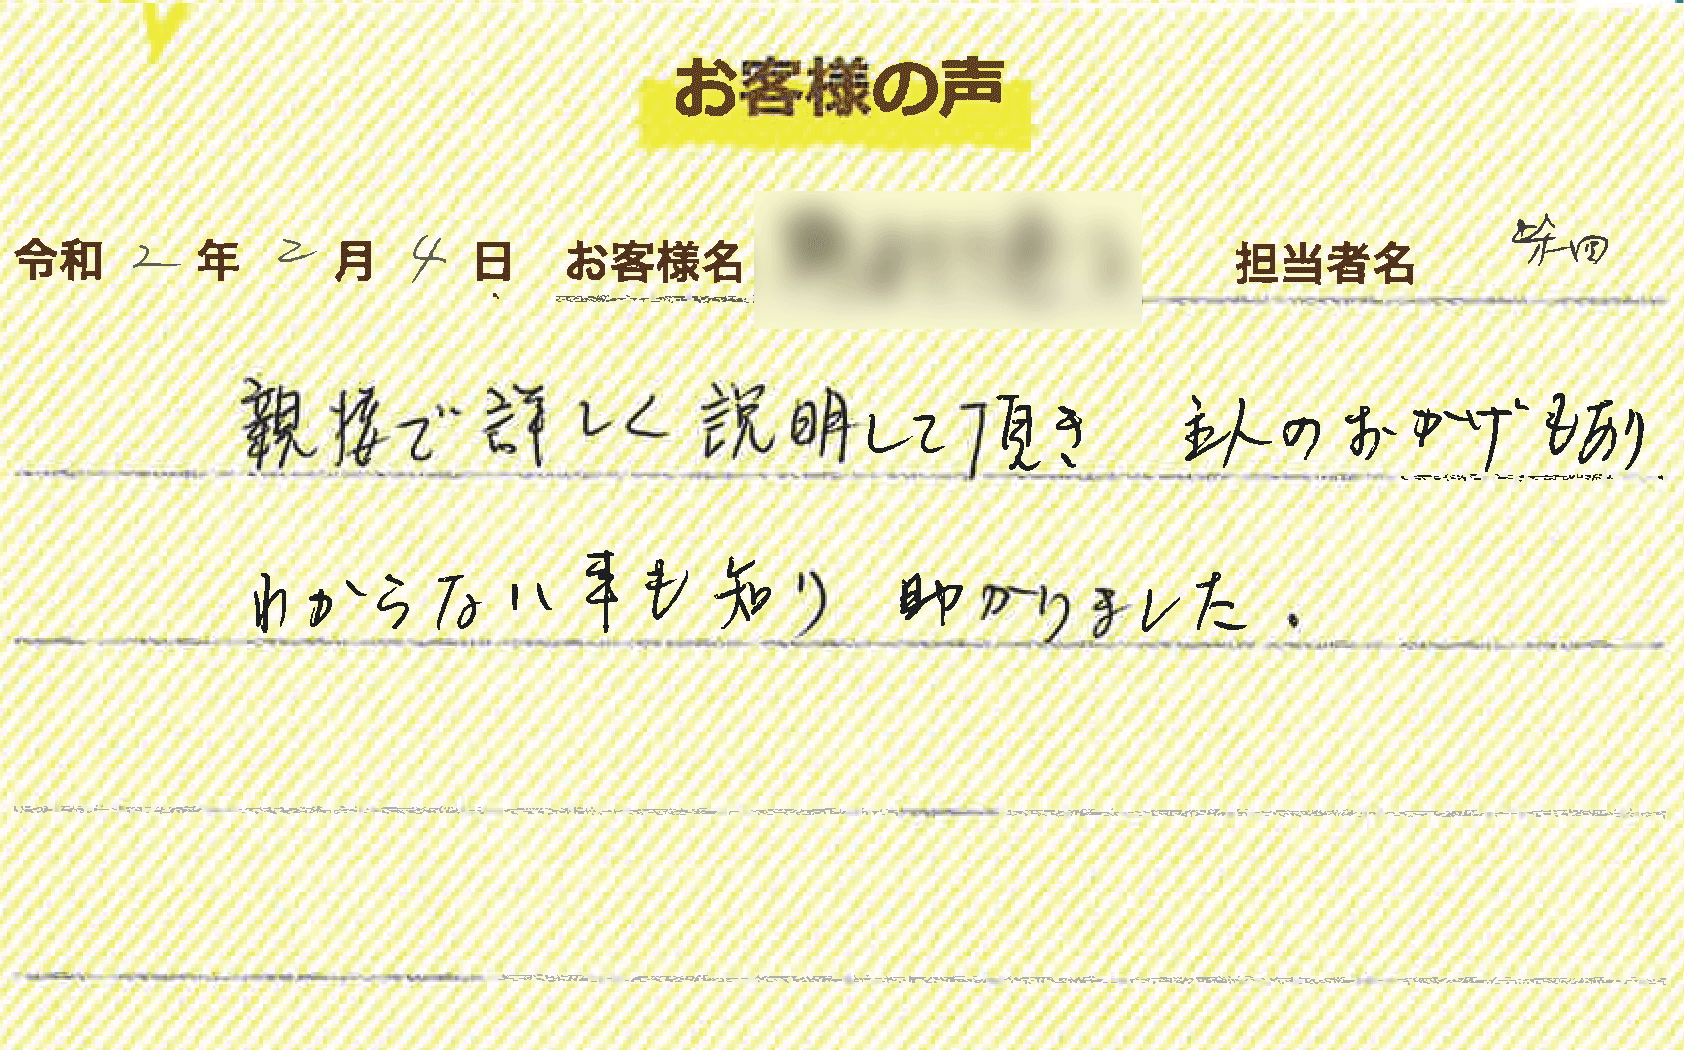 お客様の声
令和 2 年 2 月 4 日 お客様名 担当者名
親接で詳しく説明して頂き 主人のおかげもあり
わからない事も知り 助かりました.